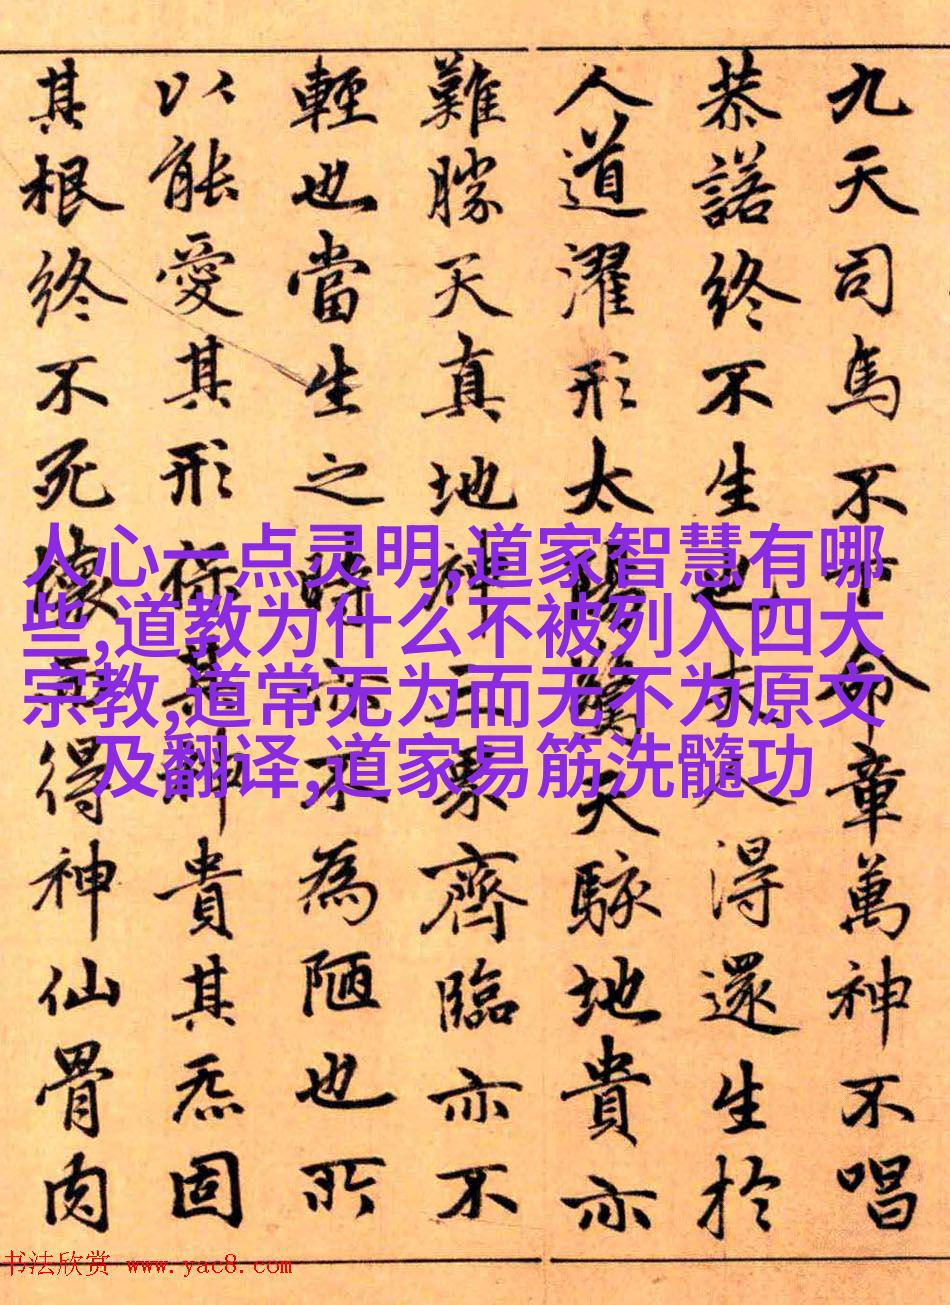 九天司馬不下命章萬神不唱
恭諾終不生也夫人得還生於
人道濯形太陽驚天駭地貴亦
難勝天真地神三界齊臨亦不
輕也當生之時亦不為陋也所
以能愛其形得其神貴其炁固
其根終不死壞而得神仙骨肉
人心一点灵明,道家智慧有哪
些,道教为什么不被列入四大
宗教,道常无为而无不为原文
及翻译,道家易筋洗髓功
书法欣赏 www.yac8.com